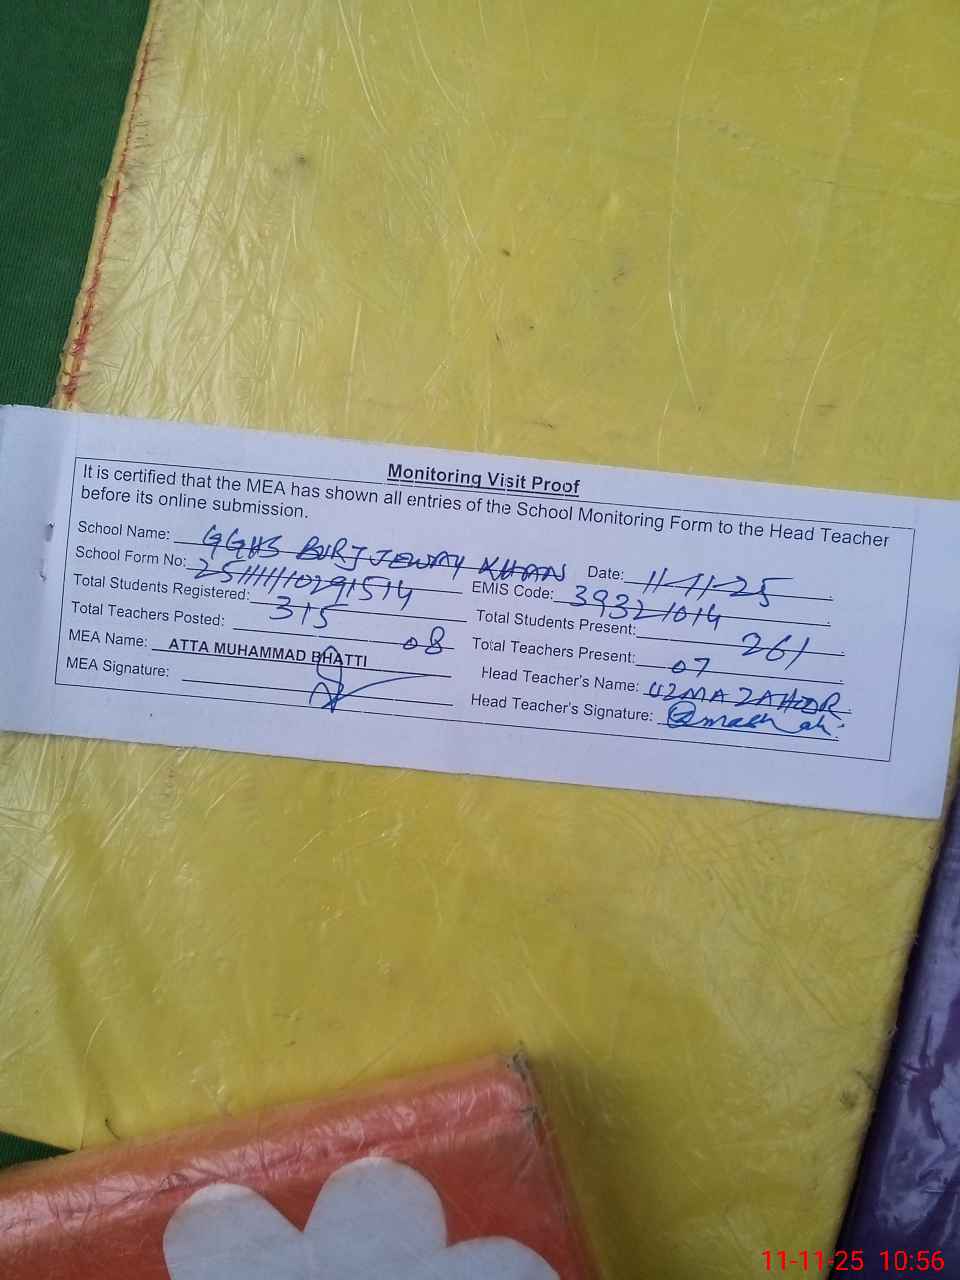 Monitoring Visit Proof
It is certified that the MEA has shown all entries of the School Monitoring Form to the Head Teacher
before its online submission.
School Name: GGHS BURJ JEWAY KHAN Date: 11-11-25
School Form No: EMIS Code: 39321014
Total Students Registered: 315 Total Students Present: 261
Total Teachers Posted: 08 Total Teachers Present: 07
MEA Name: ATTA MUHAMMAD BHATTI Head Teacher's Name: UZMA ZAHOOR
MEA Signature: Head Teacher's Signature:
11-11-25 10:56